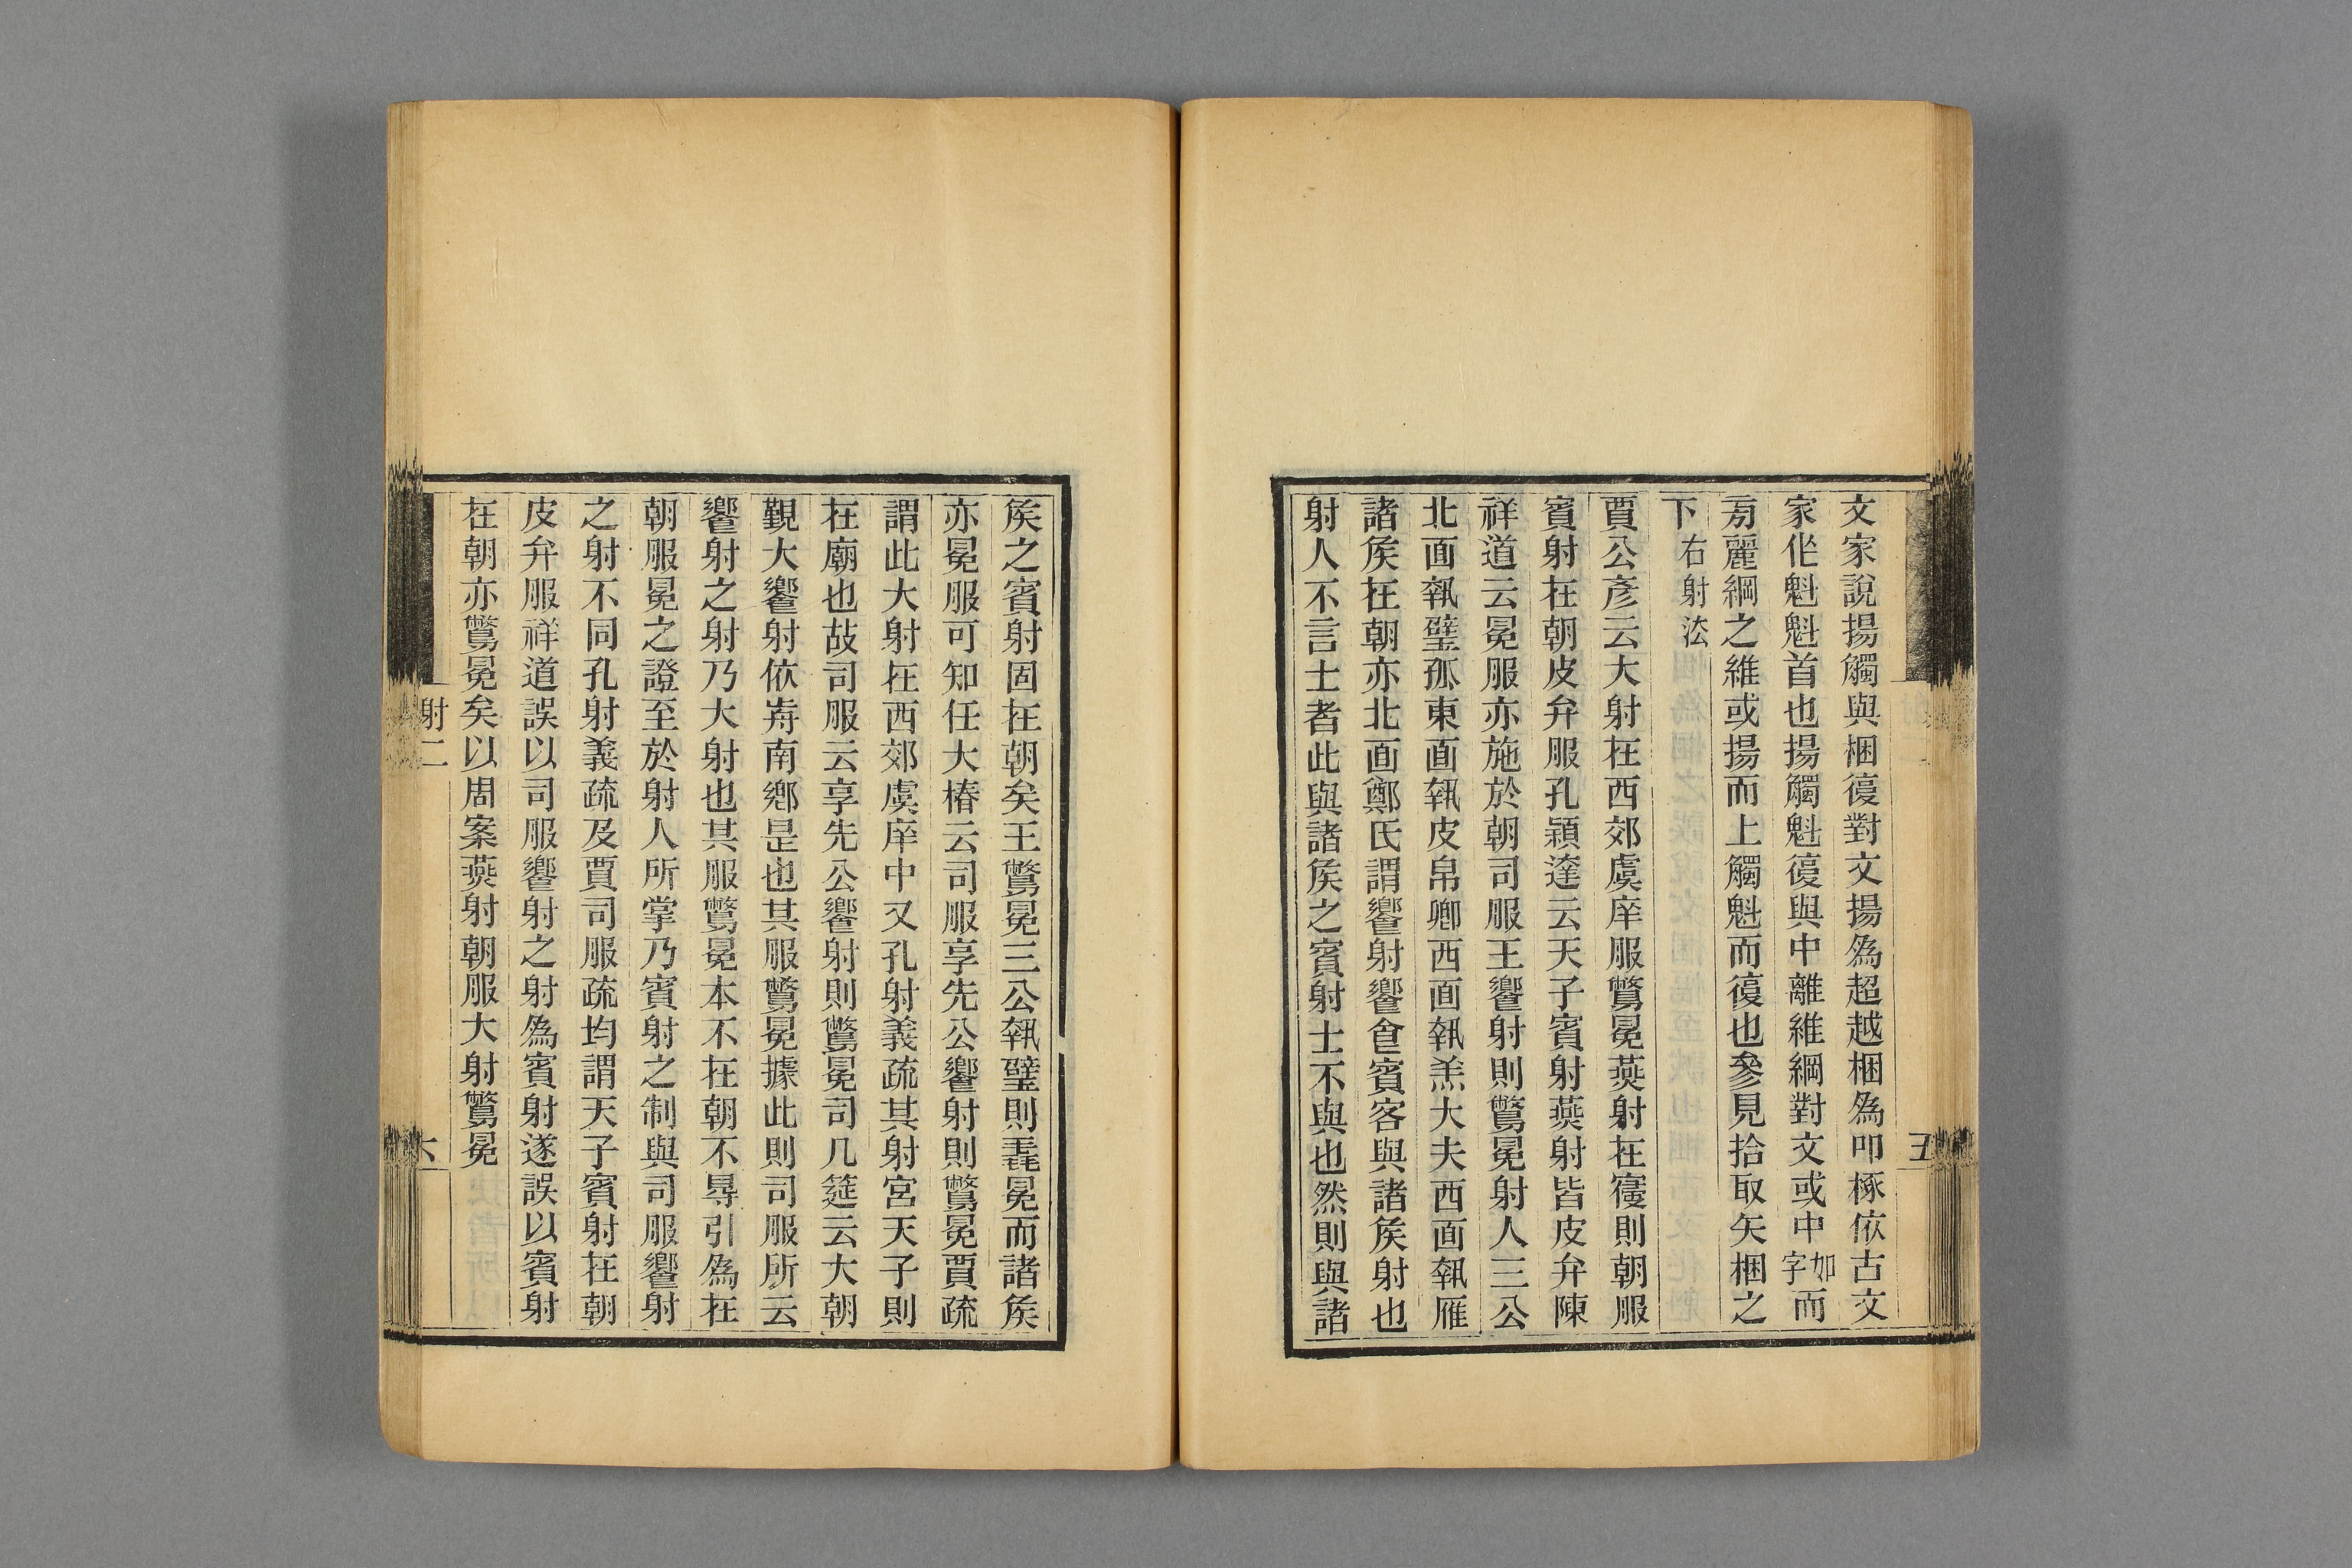 文家說揚觸與梱復對文揚為超越梱為叩椓依古文
家作魁魁首也揚觸魁復與中離維綱對文或中如字而
旁麗綱之維或揚而上觸魁而復也參見拾取矢梱之
下右射法
賈公彥云大射在西郊虞庠服鷩冕燕射在寢則朝服
賓射在朝皮弁服孔穎達云天子賓射燕射皆皮弁陳
祥道云冕服亦施於朝司服王饗射則鷩冕射人三公
北面執璧孤東面執皮帛卿西面執羔大夫西面執雁
諸矦在朝亦北面鄭氏謂饗射饗食賓客與諸矦射也
射人不言士者此與諸矦之賓射士不與也然則與諸
五
矦之賓射固在朝矣王鷩冕三公執璧則毳冕而諸矦
亦冕服可知任大椿云司服享先公饗射則鷩冕賈疏
謂此大射在西郊虞庠中又孔射義疏其射宮天子則
在廟也故司服云享先公饗射則鷩冕司几筵云大朝
覲大饗射依前南鄉是也其服鷩冕據此則司服所云
饗射之射乃大射也其服鷩冕本不在朝不得引為在
朝服冕之證至於射人所掌乃賓射之制與司服饗射
之射不同孔射義疏及賈司服疏均謂天子賓射在朝
皮弁服祥道誤以司服饗射之射為賓射遂誤以賓射
在朝亦鷩冕矣以周案燕射朝服大射鷩冕
射二
六